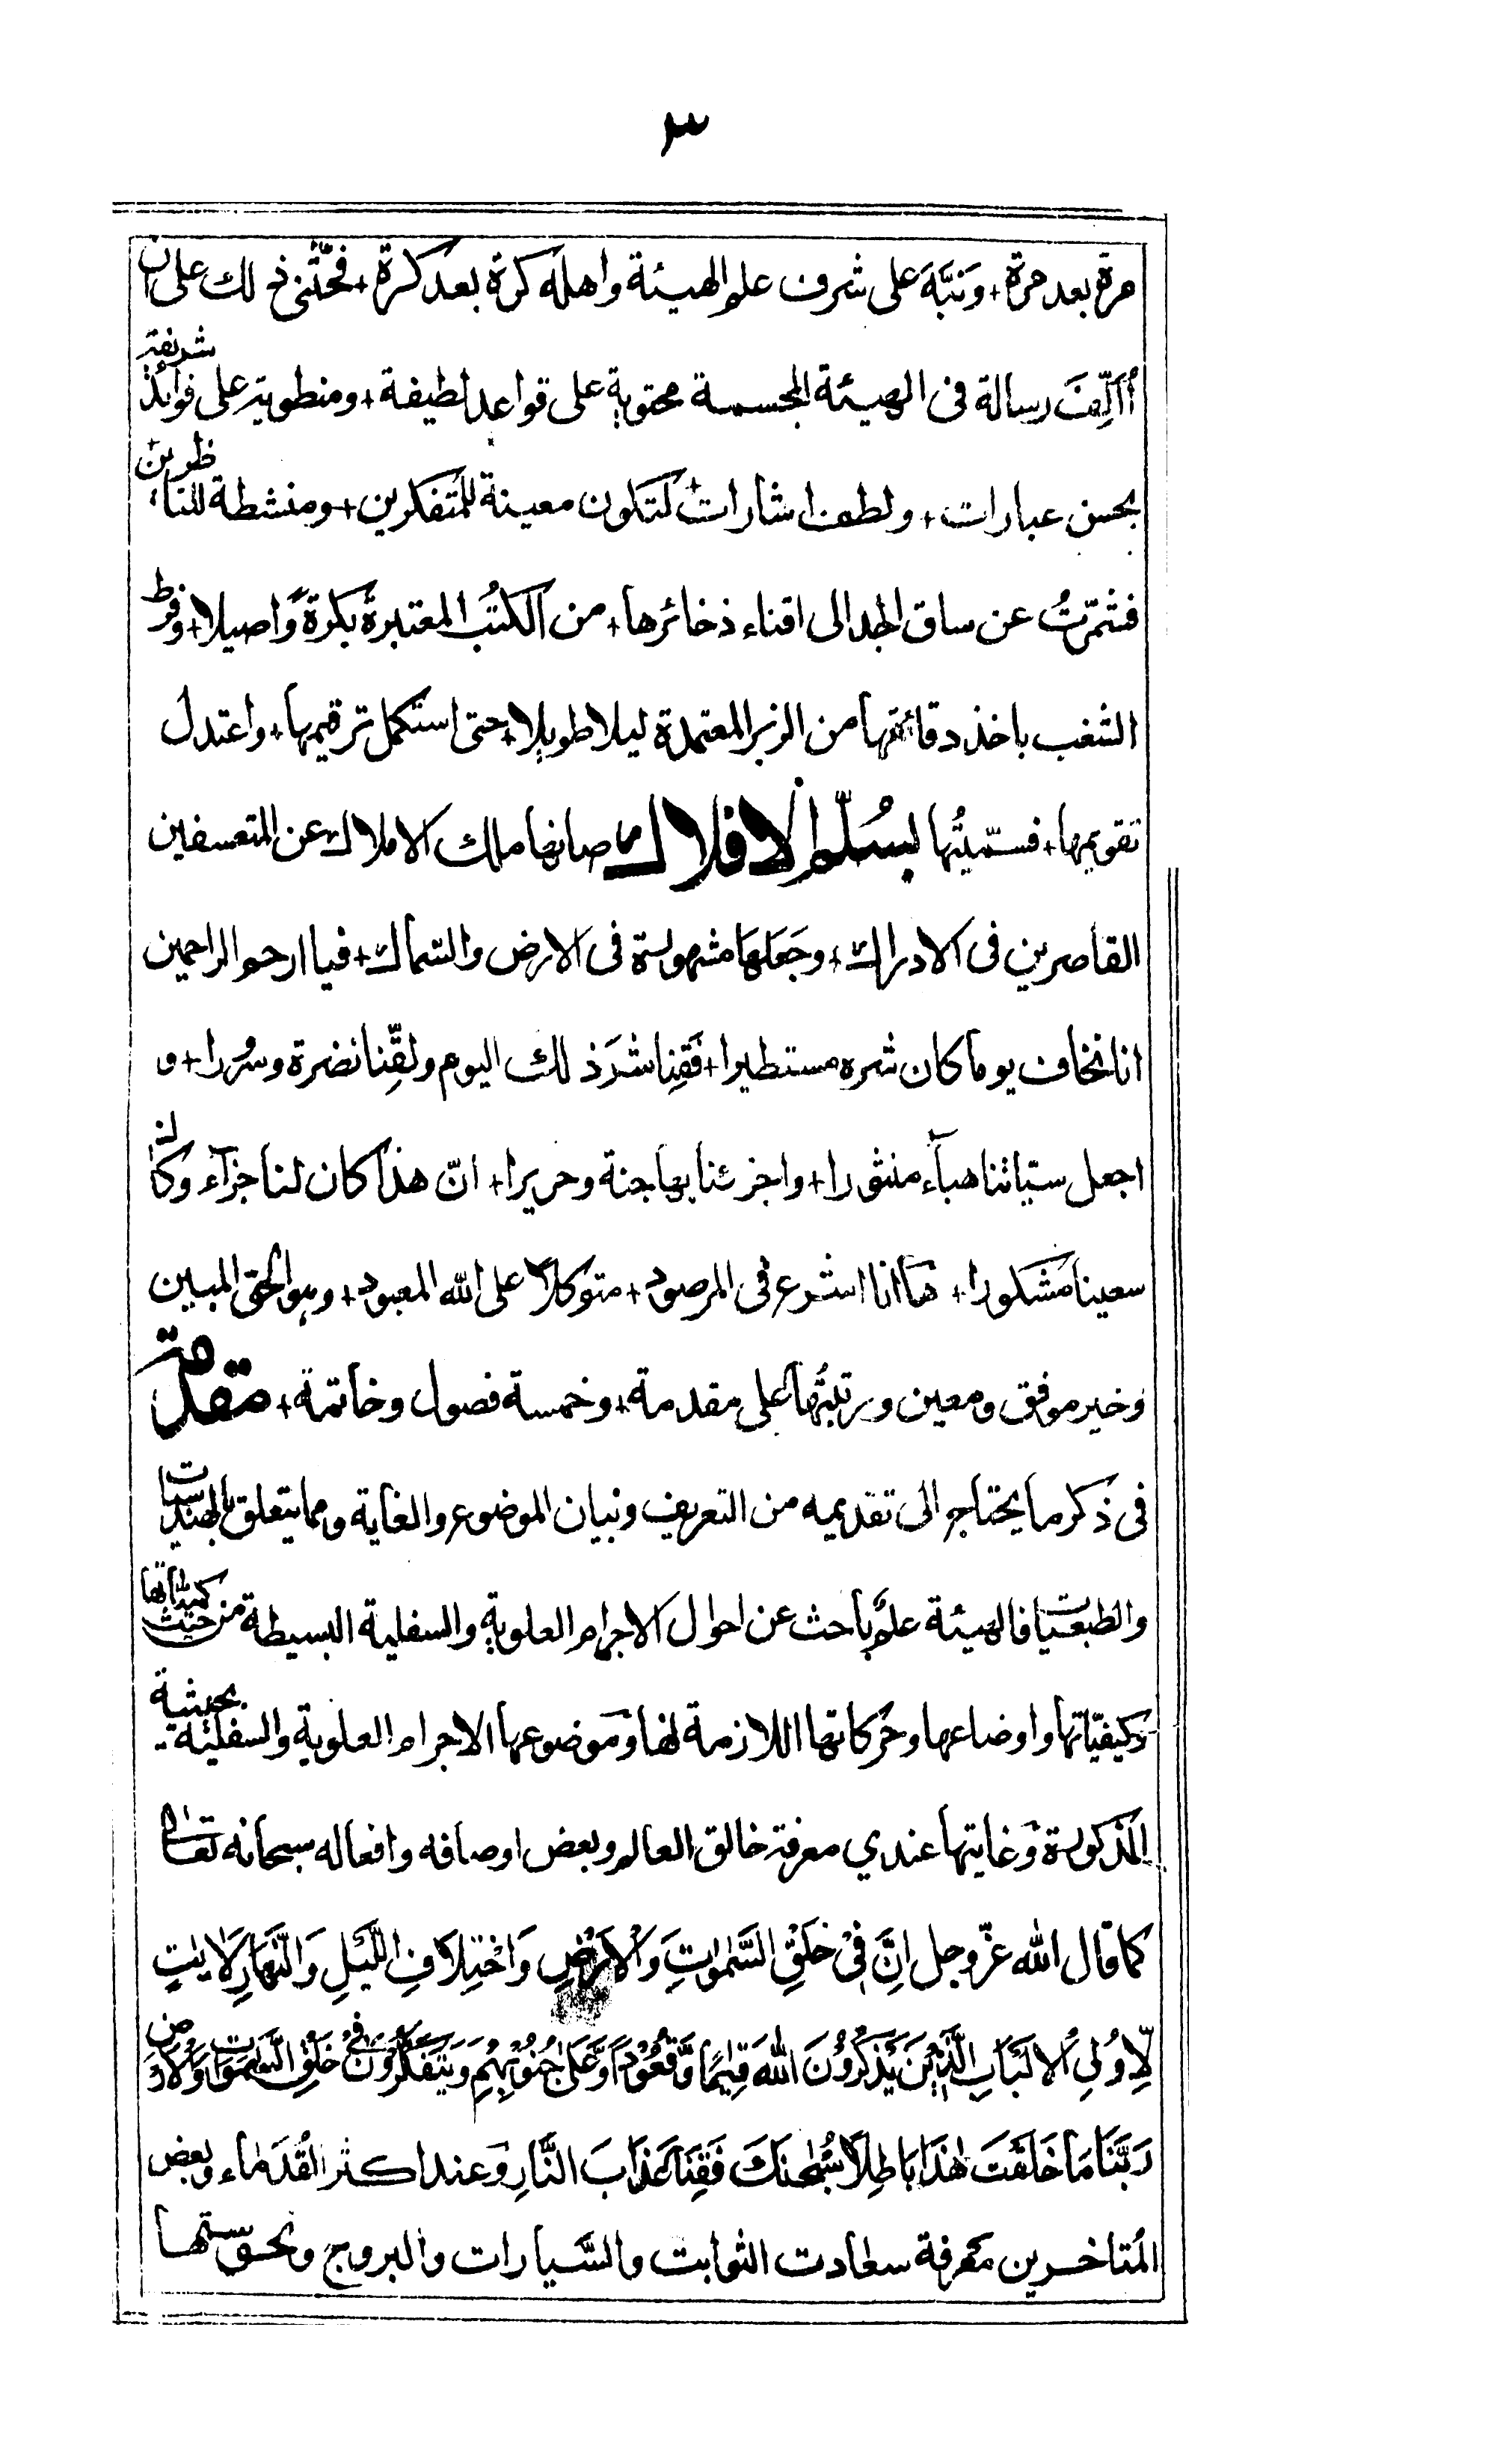 ٣
مرة بعد مرة + ونَبَّهَ على شرف علم الهيئة واهله كرة بعد كرة + فحثّنى ذلك على ان
أُألِّفَ رسالة فى الهيئة المجسمة محتوية على قواعد لطيفة + ومنطوية على فوائد شريفة
بحسن عبارات + ولطف اشارات + لتكون معينة للمتفكرين + ومنشطة للناظرين +
فشمّرتُ عن ساق الجد الى اقناء ذخائرها + من الكتُب المعتبرة بكرةً واصيلا + وفرط
الشغب باخذ دقائقها من الزبر المعتمدة ليلا طويلا + حتى استكمل ترقيمها + واعتدل
تقويمها + فسمّيتُها بسُلّم الافلاك صانها ملك الاملاك عن المتعسفين
القاصرين فى الادراك + وجَعَلهَا مشهورة فى الارض والسماك + فيا ارحم الراحمين
انا نخاف يوما كان شره مستطيرا + فَقِنا شرَ ذلك اليوم ولقِّنا نضرة وسُرورا + و
اجعل سيّاتنا هباء منثورا + واجزئنا بها جنة وحريرا + انّ هذا كان لنا جزآء وكان
سعينا مشكورا + هَا انا اشرع فى المرصود + متوكلاً على الله المعبود + وهو الحق المبين
وخير موفق ومعين ورتبتُها على مقدمة + وخمسة فصول وخاتمة + مقدمة
فى ذكر ما يحتاج الى تقديمه من التعريف وبيان الموضوع والغاية ومما يتعلق بالهندسيات
والطبعيات فالهيئة علمٌ باحث عن احوال الاجرام العلوية والسفلية البسيطة من حيث كمياتها
وكيفيّاتها واوضاعها وحركاتها اللازمة لها وموضوعها الاجرام العلوية والسفلية بحيثية
المذكورة وغايتها عندي معرفة خالق العالم وبعض اوصافه وافعاله سبحانه تعالى
كما قال الله عزّ وجل اِنَّ فِىْ خَلْقِ السَّمٰوٰتِ وَالْاَرْضِ وَاخْتِلَافِ اللَّيْلِ وَالنَّهَارِ لَاٰيٰتٍ
لِّاُولِى الْاَلْبَابِ الَّذِيْنَ يَذْكُرُوْنَ اللهَ قِيٰمًا وَّقُعُوْدًا وَّعَلٰى جُنُوْبِهِمْ وَيَتَفَكَّرُوْنَ فِىْ خَلْقِ السَّمٰوٰتِ وَالْاَرْضِ
رَبَّنَا مَا خَلَقْتَ هٰذَا بَاطِلًا سُبْحٰنَكَ فَقِنَا عَذَابَ النَّارِ وعند اكثر القُدَماء وبعض
المُتاخرين معرفة سعادت الثوابت والسَّيارات والبروج ونحوستها